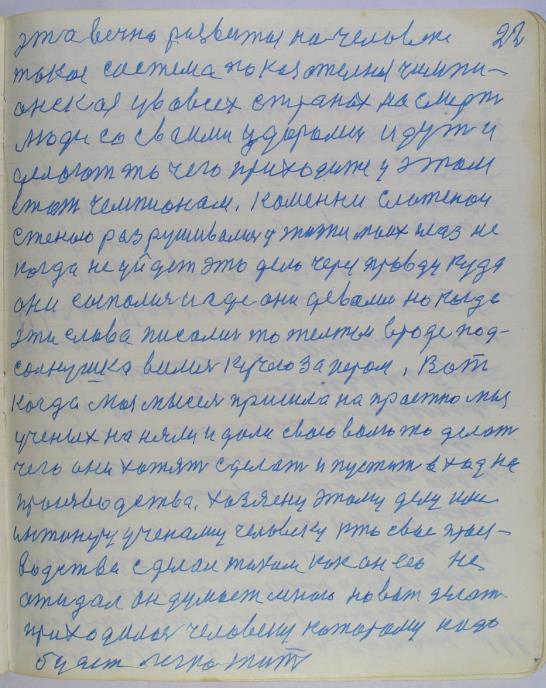 эта вечно развытая на человеке 22
такая система показателная чимпи-
онская у во всех странах на смерт
люди со своими здоровии идут и
делают то чего приходиже у этом
стат чемпионам. Каменни сложеной
стеною разрушивалая у жизни моих глаз не
когда не уйдет это дело через правду куда
они сыполис и где они девалис но когда
эти слова писалис то желтым вроде под-
солнушка вилис кругло за пером. Вот
когда моя мысел пришла на простно мы
ученых наняли и дали свою волю то делат
чего они хотят сделат и пустит в ход на
производства. Хозяену этому делу или
ученому человеку это свае произ-
водства сделал таким как он его не
ожидал он думает много новат делат
приходилос человеку которому надо
будет легко жит